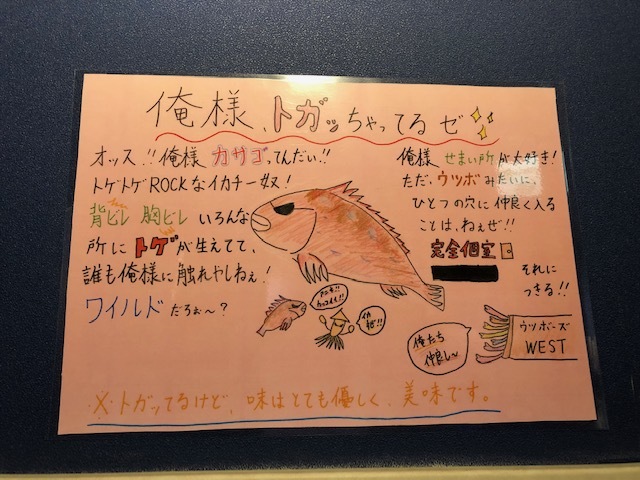 俺様、トガッちゃってるゼ
オッス!!俺様カサゴってんだい!!
トゲトゲROCKなイカチー奴!
背ビレ 胸ビレ いろんな
所にトゲが生えてて、
誰も俺様に触れやしねぇ!
ワイルドだろぉ〜?
俺様 せまい所が大好き!
ただ、ウツボみたいに、
ひとつの穴に仲良く入る
ことは、ねぇぜ!!
完全個室
それに
つきる!!
アニキ!!
カッコイイ!!
イカ
すぜ!!
俺たち
仲良し〜
ウツボーズ
WEST
※トガッてるけど、味はとても優しく、美味です。